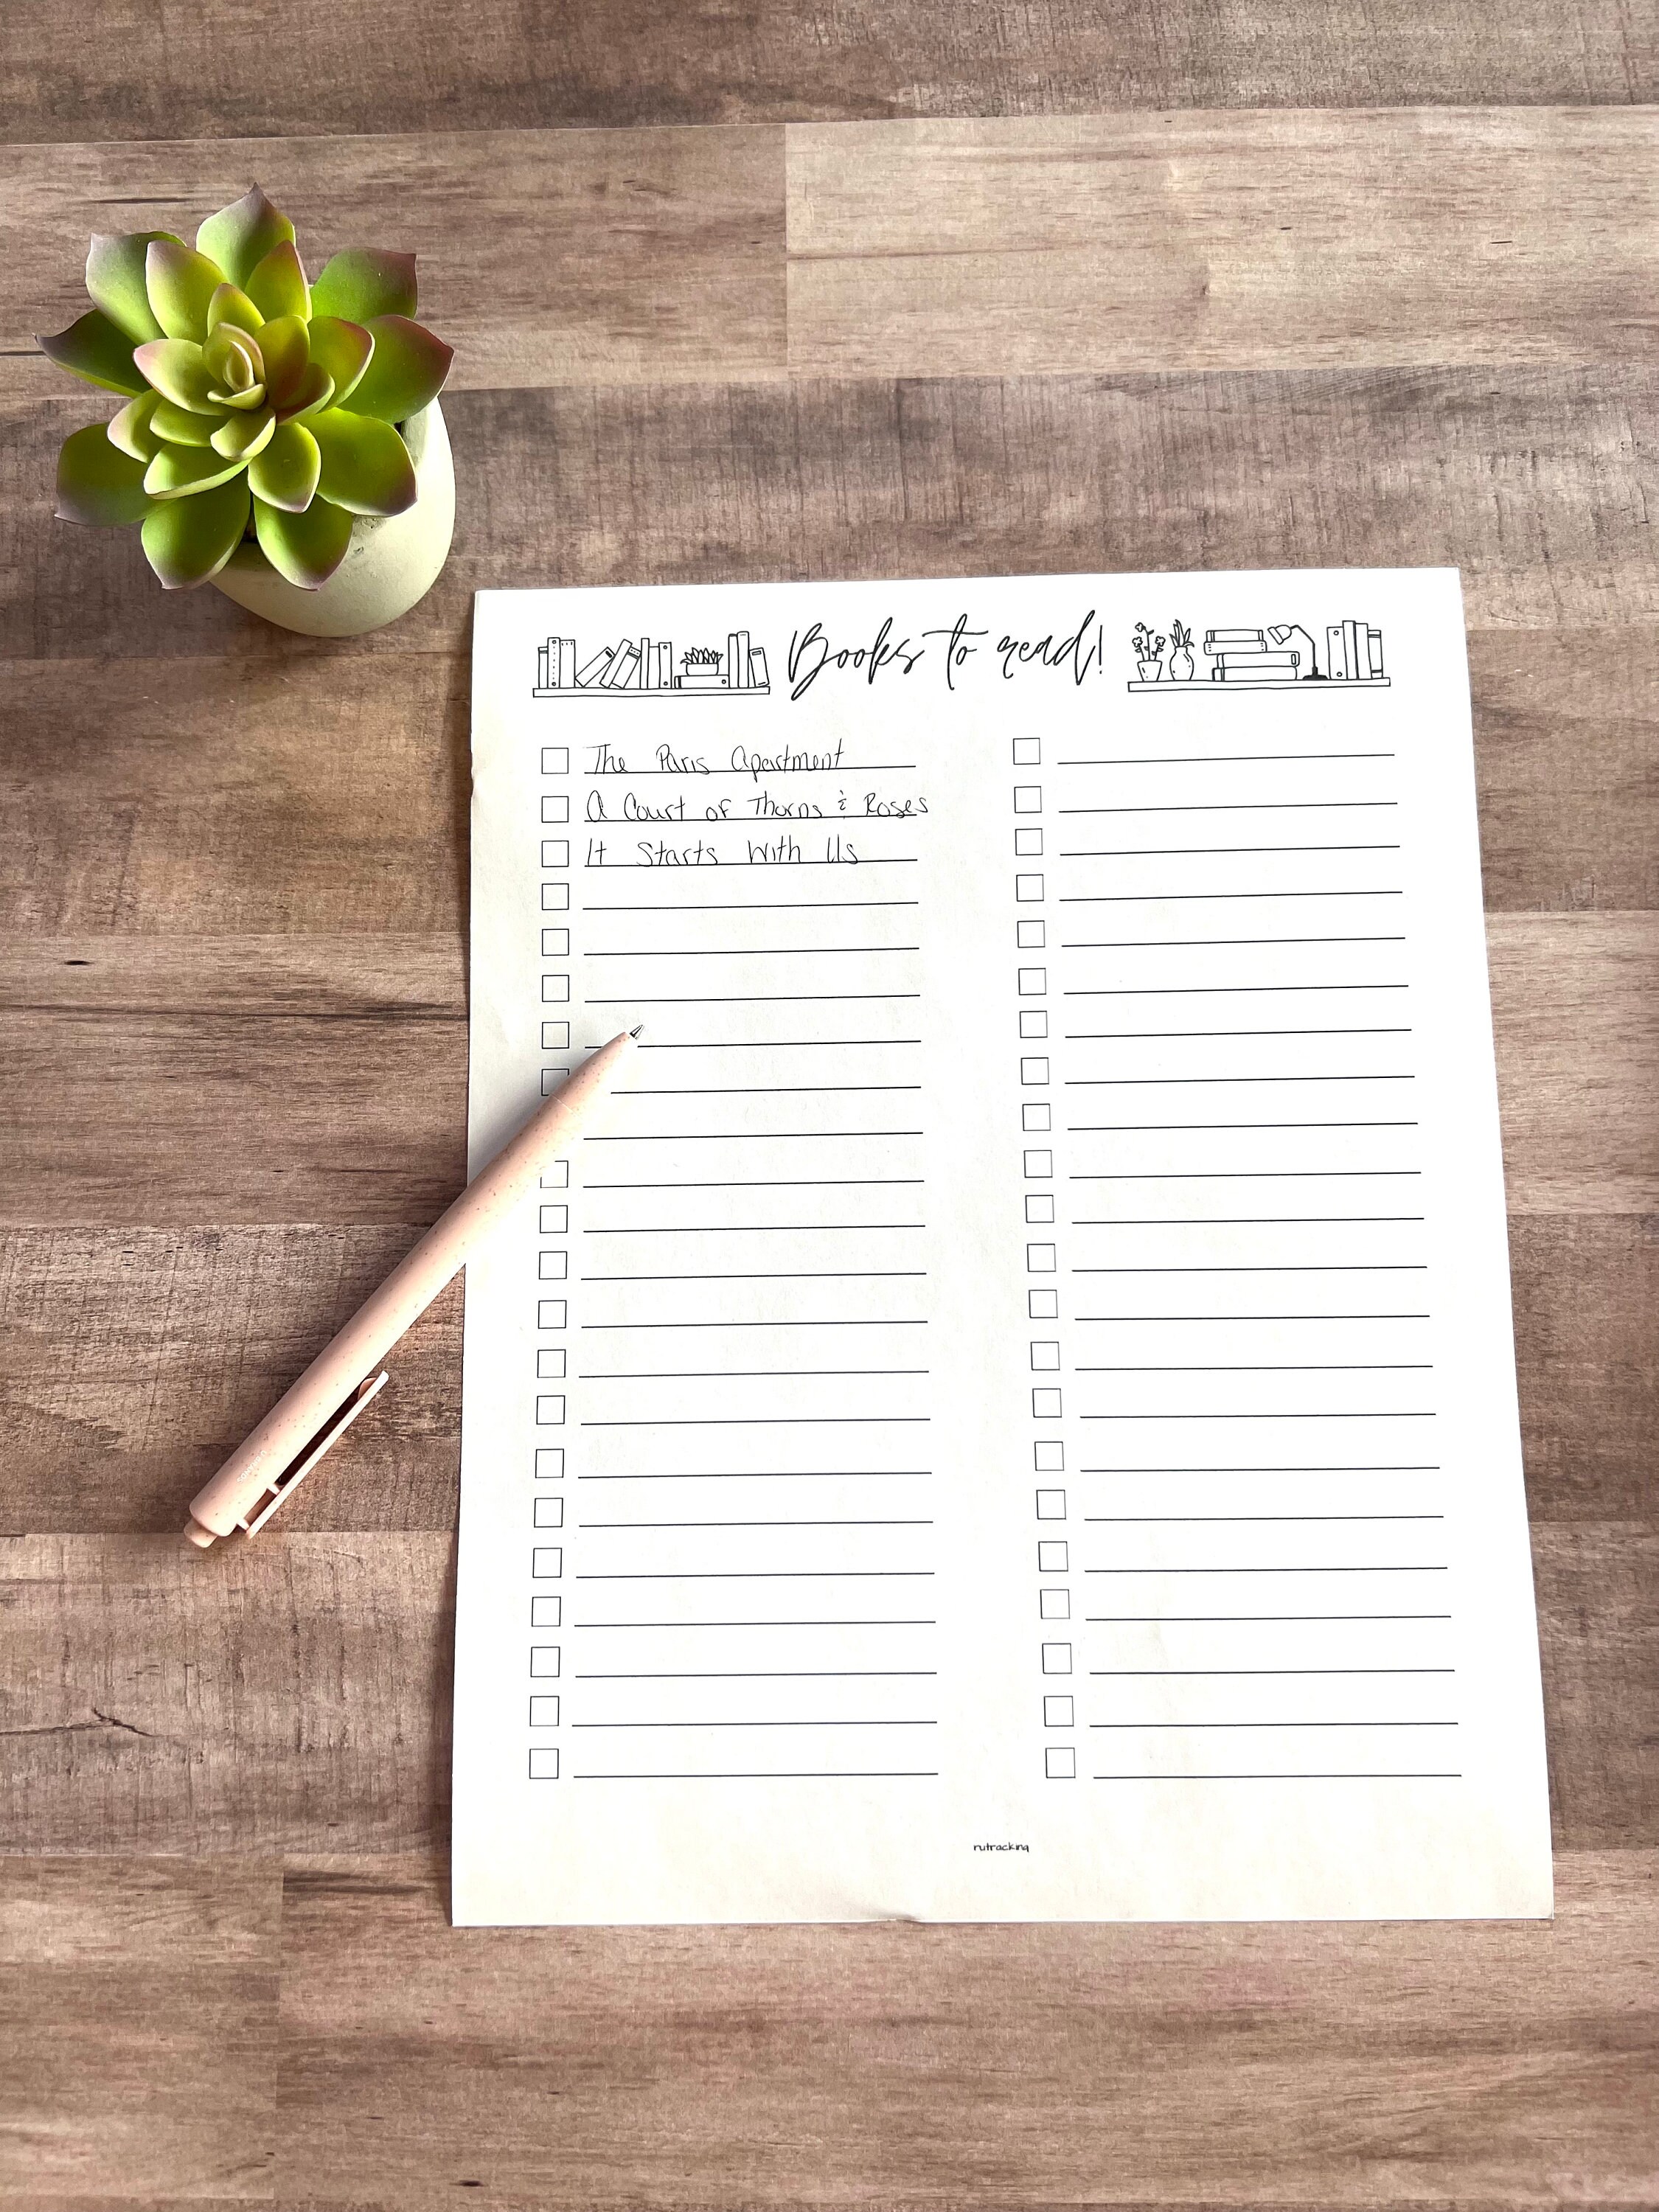 Books to read!
The Paris Apartment
A Court of Thorns & Roses
It Starts With Us
rutracking